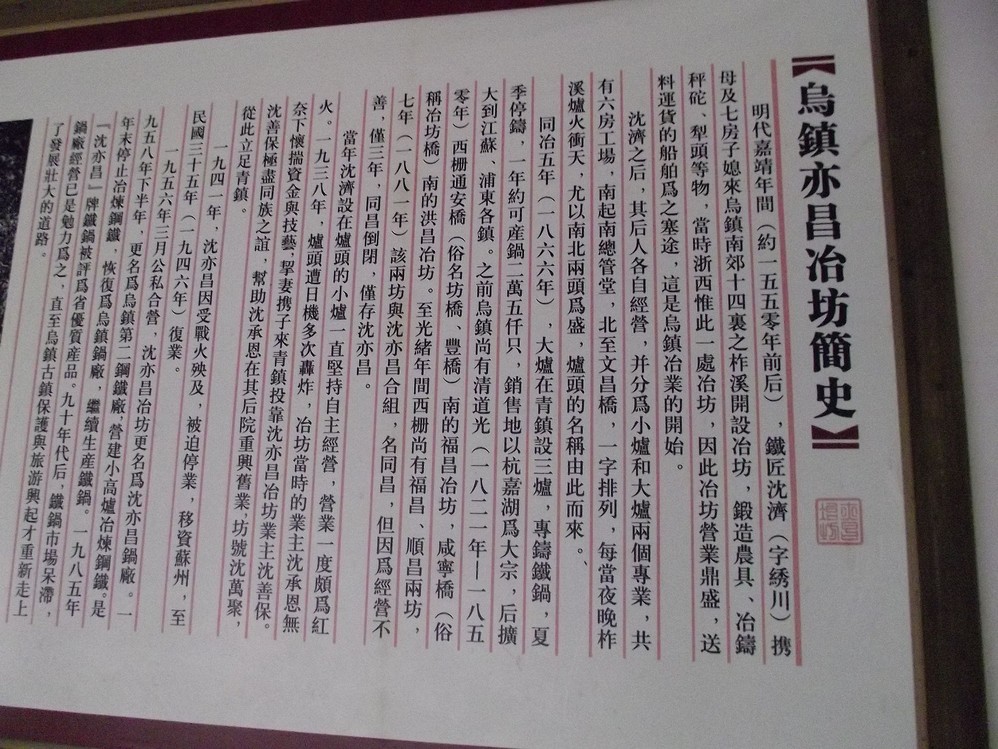 【烏鎮亦昌冶坊簡史】
明代嘉靖年間（約一五五零年前后），鐵匠沈濟（字绣川）携
母及七房子媳來烏鎮南郊十四裏之柞溪開設冶坊，鍛造農具、冶鑄
秤砣、犁頭等物，當時浙西惟此一處冶坊，因此冶坊營業鼎盛，送
料運貨的船舶爲之塞途，這是烏鎮冶業的開始。
沈濟之后，其后人各自經營，并分爲小爐和大爐兩個專業，共
有六房工場，南起南總管堂，北至文昌橋，一字排列，每當夜晚柞
溪爐火衝天，尤以南北兩頭爲盛，爐頭的名稱由此而來。、
同治五年（一八六六年），大爐在青鎮設三爐，專鑄鐵鍋，夏
季停鑄，一年約可産鍋二萬五仟只，銷售地以杭嘉湖爲大宗，后擴
大到江蘇、浦東各鎮。之前烏鎮尚有清道光（一八二一年—一八五
零年）西栅通安橋（俗名坊橋、豐橋）南的福昌冶坊，咸寧橋（俗
稱冶坊橋）南的洪昌冶坊。至光緒年間西栅尚有福昌、順昌兩坊，
七年（一八八一年）該兩坊與沈亦昌合組，名同昌，但因爲經營不
善，僅三年，同昌倒閉，僅存沈亦昌。
當年沈濟設在爐頭的小爐一直堅持自主經營，營業一度頗爲紅
火。一九三八年，爐頭遭日機多次轟炸，冶坊當時的業主沈承恩無
奈下懷揣資金與技藝，挈妻携子來青鎮投靠沈亦昌冶坊業主沈善保。
沈善保極盡同族之誼，幫助沈承恩在其后院重興舊業，坊號沈萬聚，
從此立足青鎮。
一九四一年，沈亦昌因受戰火殃及，被迫停業，移資蘇州，至
民國三十五年（一九四六年）復業。
一九五六年三月公私合營，沈亦昌冶坊更名爲沈亦昌鍋廠。一
九五八年下半年，更名爲烏鎮第二鋼鐵廠，營建小高爐冶煉鋼鐵。是
年末停止冶煉鋼鐵，恢復爲烏鎮鍋廠，繼續生産鐵鍋。一九八五年
『沈亦昌』牌鐵鍋被評爲省優質産品。九十年代后，鐵鍋市場呆滯，
鍋廠經營已是勉力爲之，直至烏鎮古鎮保護與旅游興起才重新走上
了發展壯大的道路。